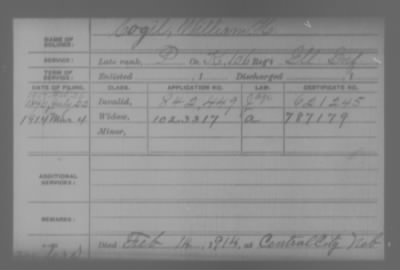 NAME OF SOLDIER: Cogil, William H.
SERVICE: Late rank, P Co. K, 106 Reg't Ill Inf
TERM OF SERVICE: Enlisted , 1 Discharged , 1
DATE OF FILING. CLASS. APPLICATION NO. LAW. CERTIFICATE NO.
1890 July 22 Invalid, 842,449 621245
1914 Mar 4 Widow, 1023317 a 787179
Minor,
ADDITIONAL SERVICES:
REMARKS:
Died Feb 14, 1914, at Central City Neb